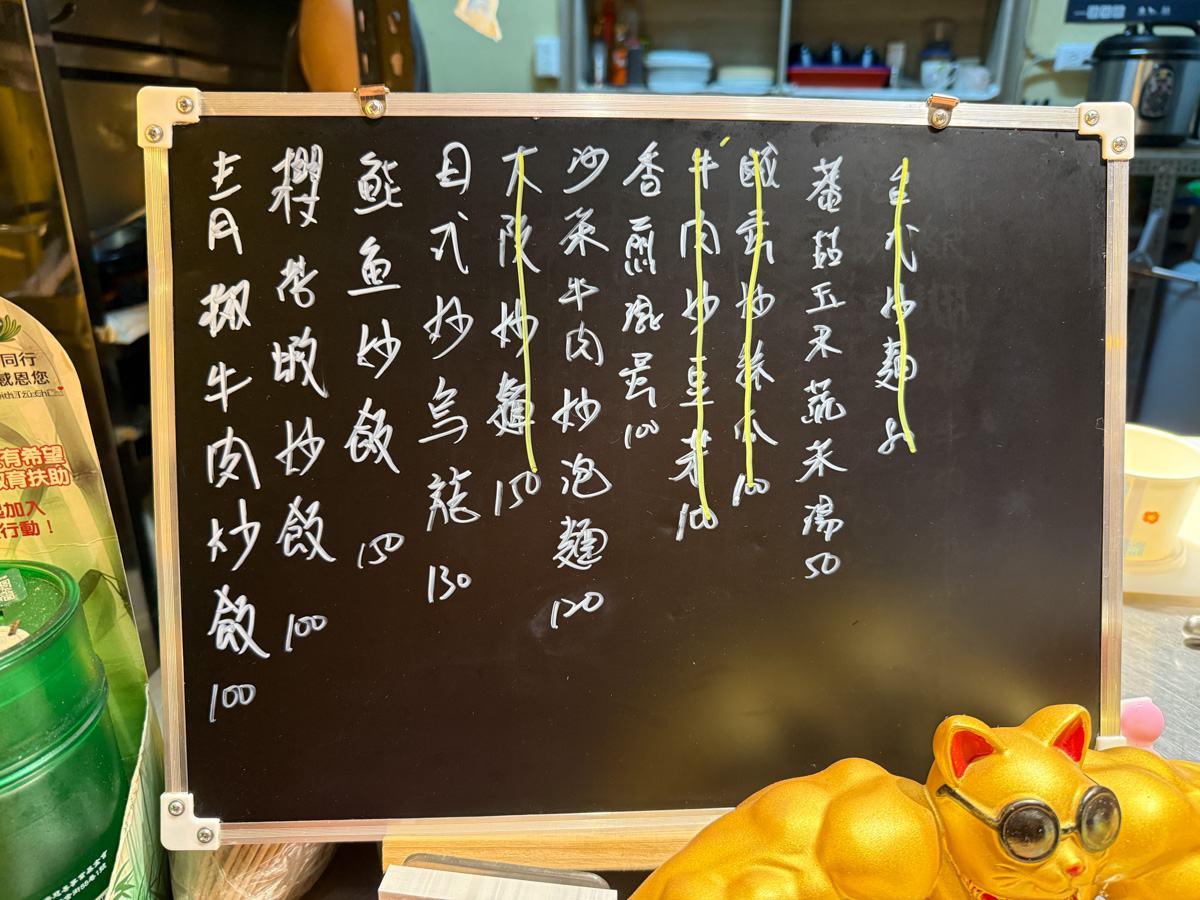 台式炒麵
蕃茄玉米蔬菜湯 50
鹹蛋炒絲瓜 100
牛肉炒豆 100
香煎蔥蛋 100
沙茶牛肉炒泡麵 120
大阪炒麵 150
日式炒烏龍 130
鮭魚炒飯 150
櫻花蝦炒飯 100
青椒牛肉炒飯 100
同行
感恩您
with Tzu Chi
有希望
教育扶助
加入
行動！